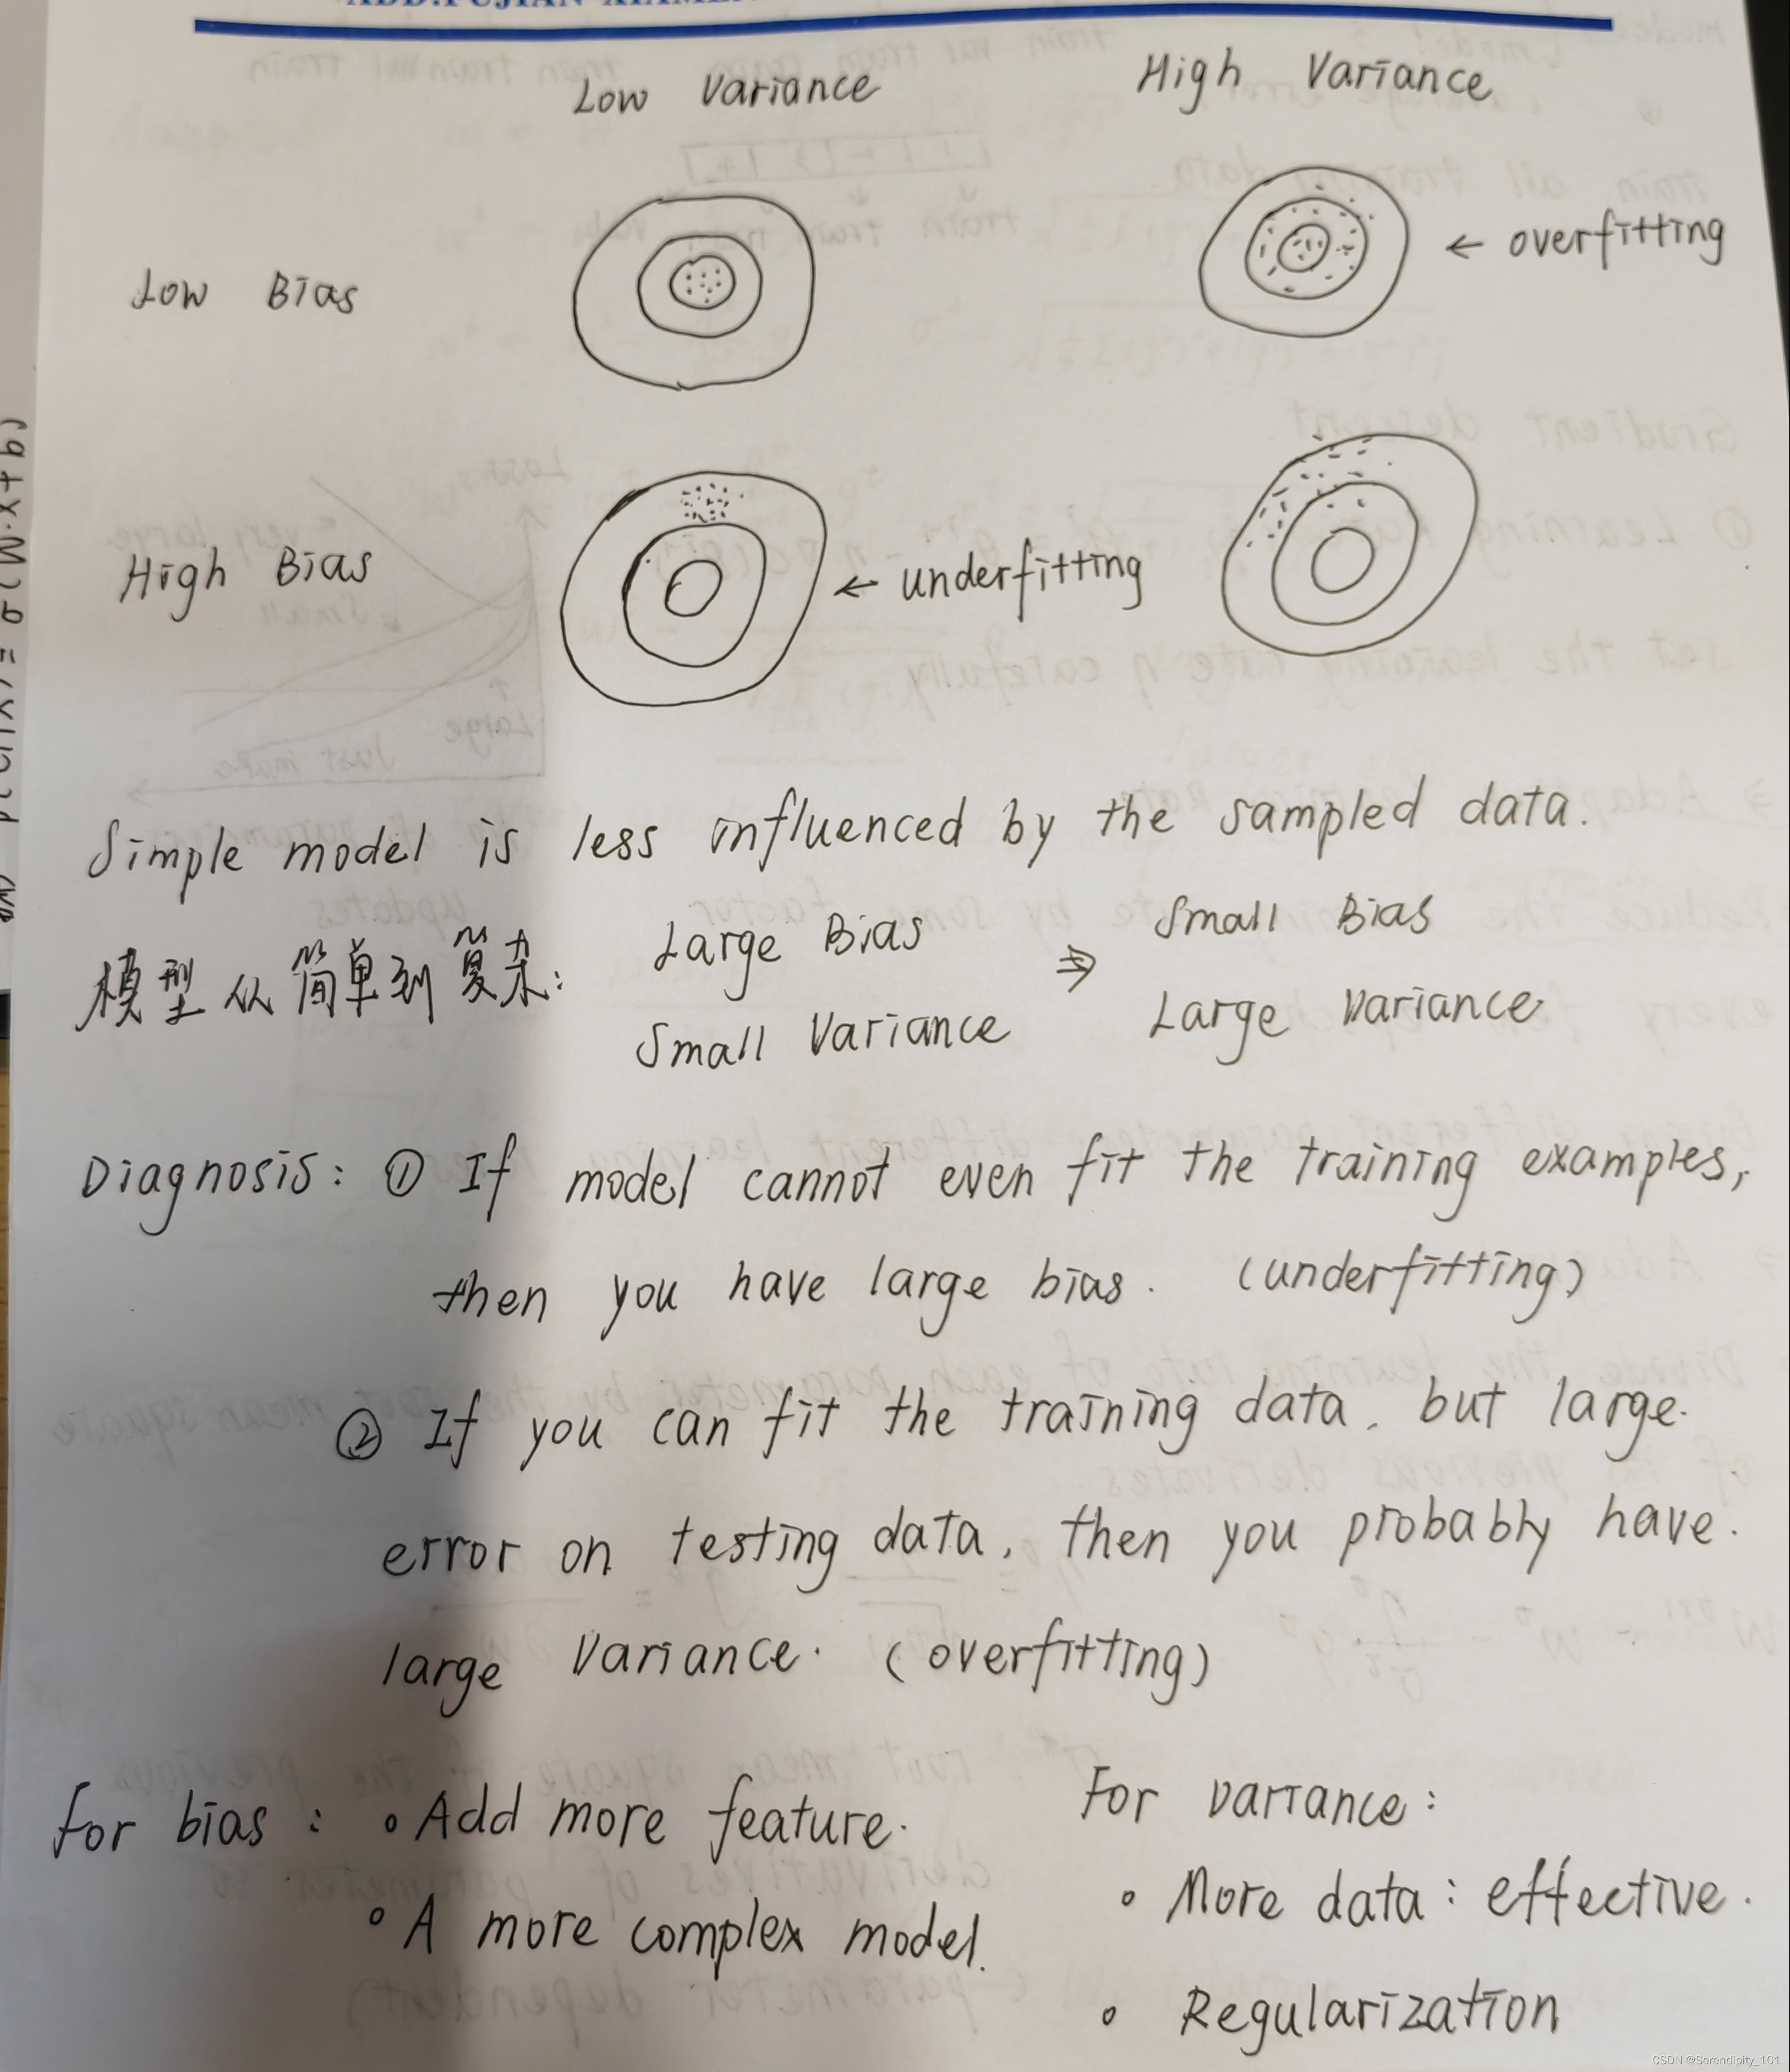 Low Variance High Variance
Low Bias
← overfitting
High Bias
← underfitting
Simple model is less influenced by the sampled data.
模型从简单到复杂: Large Bias ⇒ Small Bias
Small Variance Large Variance
Diagnosis: ① If model cannot even fit the training examples,
then you have large bias. (underfitting)
② If you can fit the training data, but large
error on testing data, then you probably have
large Variance. (overfitting)
For bias: • Add more feature.
• A more complex model.
For variance:
• More data: effective.
• Regularization
CSDN @Serendipity_101